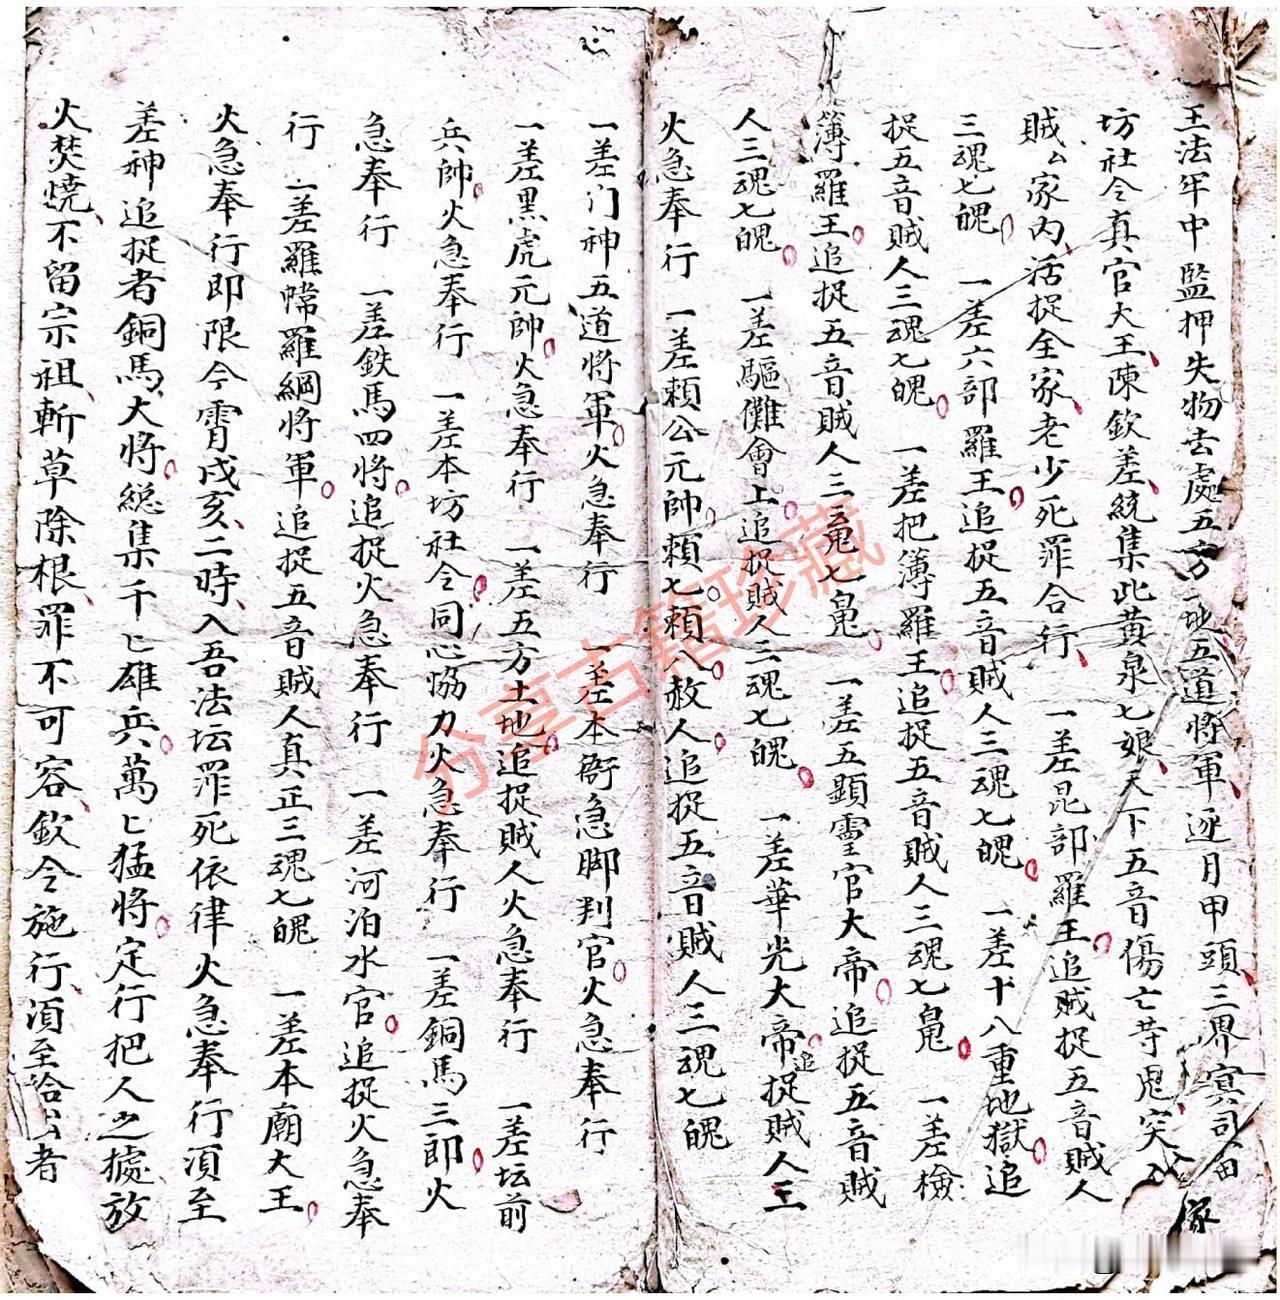 王法牢中監押失物去處五方一地五道將軍逐月甲頭三界寞司
坊社令真官大王陳欽差統集此黄泉七娘天下五音傷亡等鬼突入
賊〻家内活捉全家老少死罪合行 一差昆部羅王追賊捉五音賊人
三魂七魄 一差六部羅王追捉五音賊人三魂七魄 一差十八重地獄追
捉五音賊人三魂七魄 一差把薄羅王追捉五音賊人三魂七魄 一差檢
薄羅王追捉五音賊人三魂七魄 一差五顕霊官大帝追捉五音賊
人三魂七魄 一差驅儺會上追捉賊人三魂七魄 一差華光大帝追捉賊人三
火急奉行 一差賴公元帥賴七賴八赦人追捉五音賊人三魂七魄
一差门神五道将軍火急奉行 一差本衙急脚判官火急奉行
一差黑虎元帥火急奉行 一差五方土地追捉賊人火急奉行 一差坛前
兵帥火急奉行 一差本坊社令同心恊力火急奉行 一差銅馬三郎火
急奉行 一差鉄馬四将追捉火急奉行 一差河泊水官追捉火急奉
行 一差羅幃羅綱将軍追捉五音賊人真正三魂七魄 一差本廟大王
火急奉行即限今霄戌亥二時入吾法坛罪死依律火急奉行湏至
差神追捉者銅馬大将総集千〻雄兵萬〻猛将定行把人之處放
火焚燒不留宗祖斬草除根罪不可容欽令施行湏至
者
分享古籍珍藏